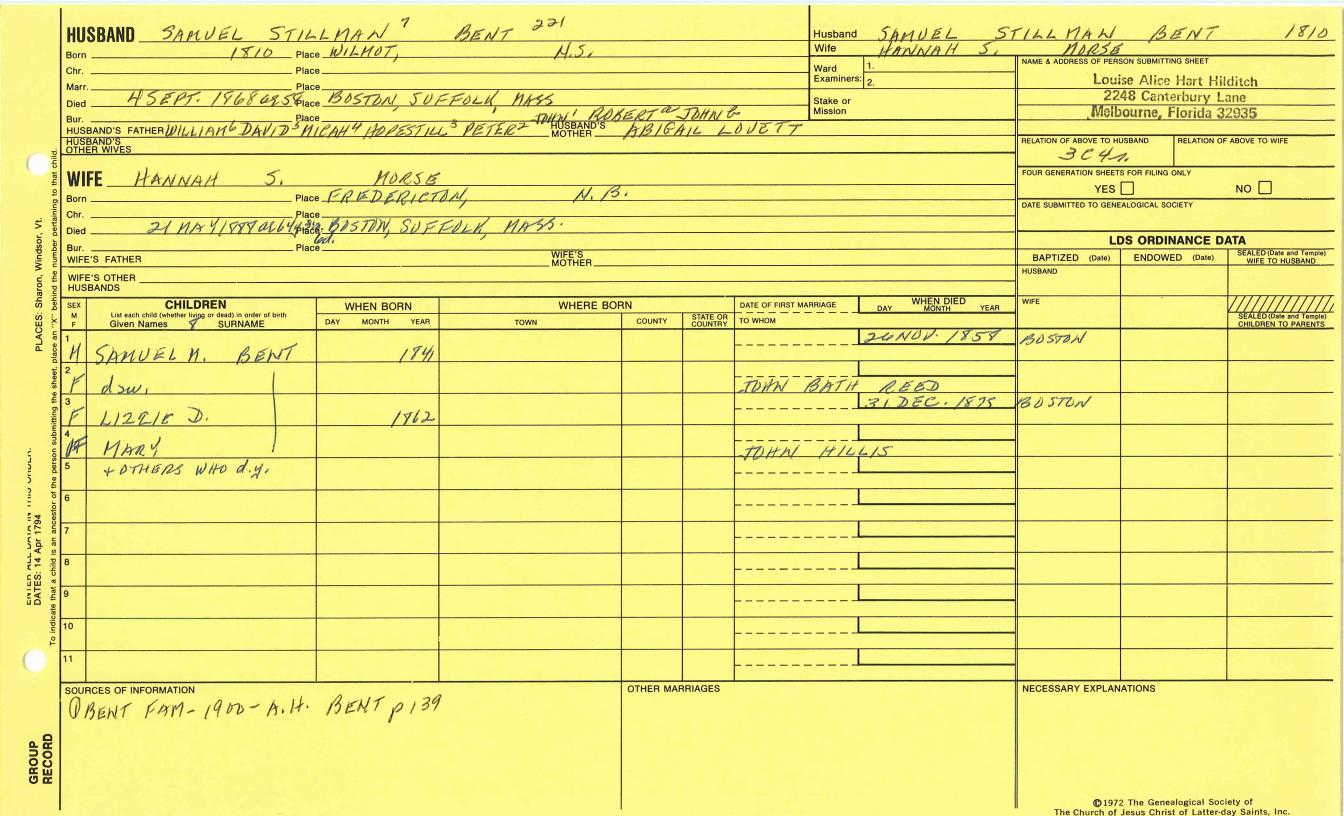 HUSBAND SAMUEL STILLMAN 7 BENT 221
Born 1810 Place WILMOT, N.S.
Chr. Place
Marr. Place
Died 4 SEPT. 1868 ae 58 Place BOSTON, SUFFOLK, MASS
Bur. Place
HUSBAND'S FATHER WILLIAM6 DAVID5 MICAH4 HOPESTILL3 PETER2 JOHN1 ROBERTa JOHNb HUSBAND'S MOTHER ABIGAIL LOVETT
HUSBAND'S OTHER WIVES
WIFE HANNAH S. MORSE
Born Place FREDERICTON, N.B.
Chr. Place
Died 21 MAY 1888 ae 64 Place BOSTON, SUFFOLK, MASS.
Bur. Place
WIFE'S FATHER WIFE'S MOTHER
WIFE'S OTHER HUSBANDS
Husband SAMUEL STILLMAN BENT 1810
Wife HANNAH S. MORSE
Ward Examiners: 1.
2.
Stake or Mission
NAME & ADDRESS OF PERSON SUBMITTING SHEET
Louise Alice Hart Hilditch
2248 Canterbury Lane
Melbourne, Florida 32935
RELATION OF ABOVE TO HUSBAND RELATION OF ABOVE TO WIFE
3C4r.
FOUR GENERATION SHEETS FOR FILING ONLY
YES NO
DATE SUBMITTED TO GENEALOGICAL SOCIETY
LDS ORDINANCE DATA
BAPTIZED (Date) ENDOWED (Date) SEALED (Date and Temple) WIFE TO HUSBAND
HUSBAND
WIFE
SEALED (Date and Temple) CHILDREN TO PARENTS
SEX M F CHILDREN WHEN BORN WHERE BORN DATE OF FIRST MARRIAGE WHEN DIED
List each child (whether living or dead) in order of birth
Given Names 8 SURNAME DAY MONTH YEAR TOWN COUNTY STATE OR COUNTRY TO WHOM DAY MONTH YEAR
1 M SAMUEL M. BENT 1841 26 NOV. 1858 BOSTON
2 F dau. JOHN BATH REED
3 F LIZZIE D. 1862 31 DEC. 1875 BOSTON
4 F MARY JOHN HILLIS
5 + OTHERS WHO d.y.
6
7
8
9
10
11
SOURCES OF INFORMATION
① BENT FAM- 1900- A.H. BENT p139
OTHER MARRIAGES
NECESSARY EXPLANATIONS
©1972 The Genealogical Society of
The Church of Jesus Christ of Latter-day Saints, Inc.
PLACES: Sharon, Windsor, Vt.
ENTER ALL DATA IN THIS ORDER:
DATES: 14 Apr 1794
To indicate that a child is an ancestor of the person submitting the sheet, place an "X" behind the number pertaining to that child.
GROUP RECORD